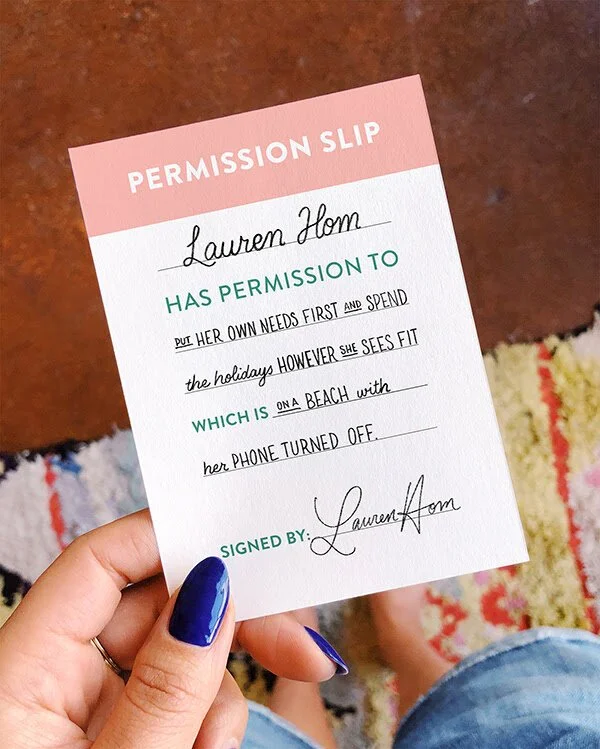 PERMISSION SLIP
Lauren Hom
HAS PERMISSION TO
PUT HER OWN NEEDS FIRST AND SPEND
the holidays HOWEVER SHE SEES FIT
WHICH IS ON A BEACH with
her PHONE TURNED OFF.
SIGNED BY: Lauren Hom